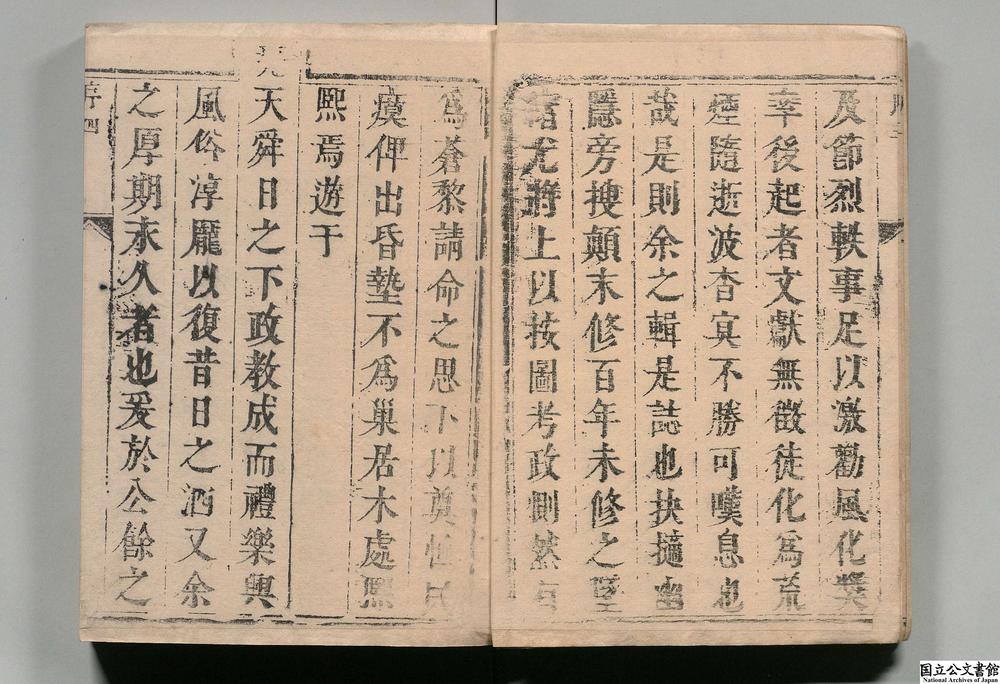 及節烈軼事足以激勸風化奬
率後起者文獻無徵徒化爲荒
煙隨逝波杳冥不勝可嘆息也
哉是則余之輯是誌也抉擿幽
隱旁搜顛末修百年未修之墜
緒尤將上以按圖考政惻然有
爲蒼黎請命之思下以奠恒民
瘼俾出昏墊不爲巢居木處熙
熙焉遊于
堯
天舜日之下政教成而禮樂興
風俗淳龎以復昔日之洒又余
之厚期永久者也爰於公餘之
序四
国立公文書館
National Archives of Japan